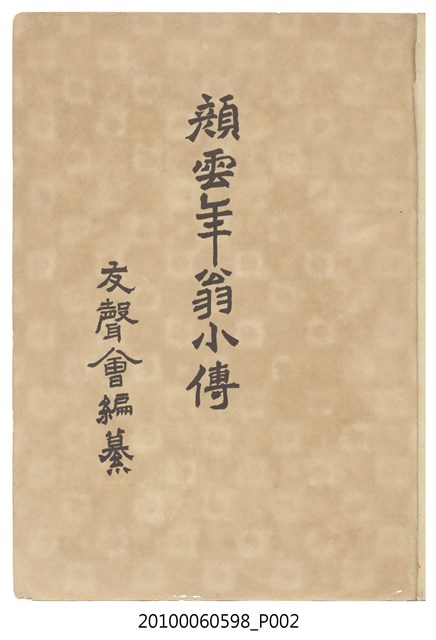 顏雲年翁小傳
友聲會編纂
20100060598_P002